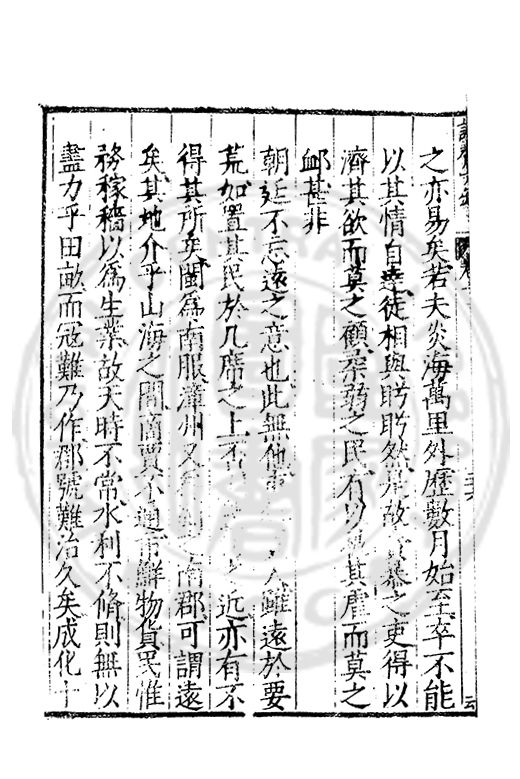 之亦易矣若夫炎海萬里外歷數月始至卒不能
以其情自達徒相與盻盻然是故貪暴之吏得以
濟其欲而莫之顧柔弱之民有以罹其虐而莫之
䘏甚非
朝廷不忘遠之意也此無他 人雖遠於要
荒如置其民於几席之上否 近亦有不
得其所矣閩爲南服漳州又 南郡可謂遠
矣其地介乎山海之間商賈不通市鮮物貨民惟
務稼穡以爲生業故天時不常水利不脩則無以
盡力乎田畝而寇難乃作郡號難治久矣成化十